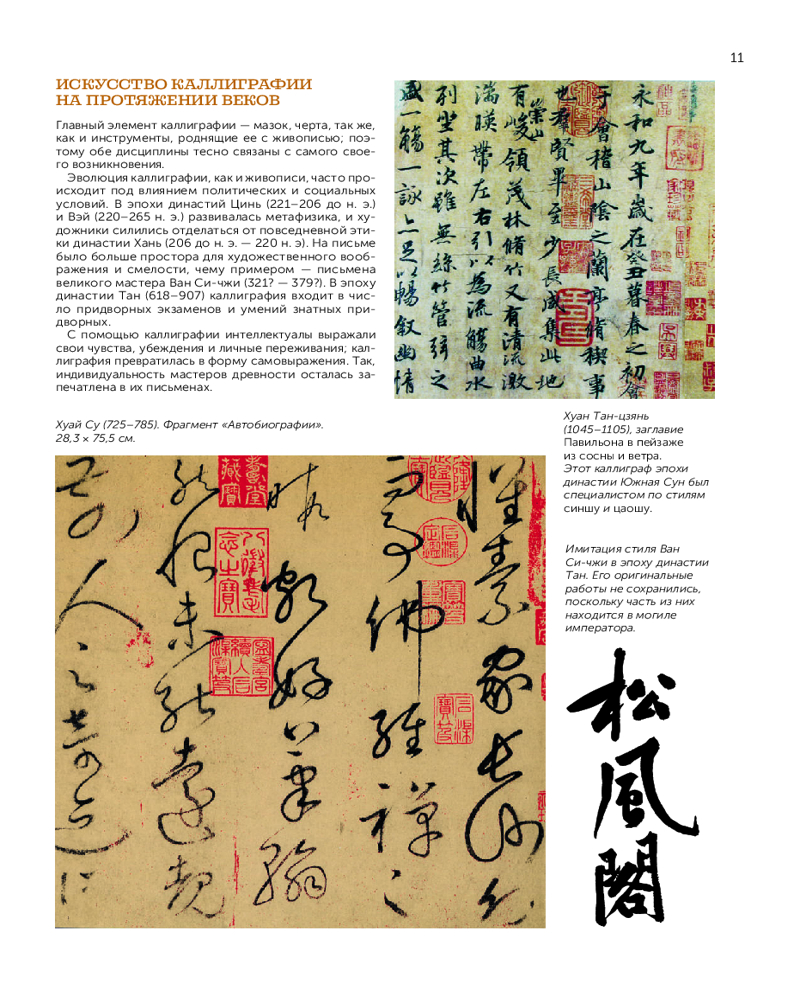 11
ИСКУССТВО КАЛЛИГРАФИИ
НА ПРОТЯЖЕНИИ ВЕКОВ
Главный элемент каллиграфии — мазок, черта, так же,
как и инструменты, роднящие ее с живописью; поэ-
тому обе дисциплины тесно связаны с самого свое-
го возникновения.
Эволюция каллиграфии, как и живописи, часто про-
исходит под влиянием политических и социальных
условий. В эпохи династий Цинь (221–206 до н. э.)
и Вэй (220–265 н. э.) развивалась метафизика, и ху-
дожники силились отделаться от повседневной эти-
ки династии Хань (206 до н. э. — 220 н. э). На письме
было больше простора для художественного вооб-
ражения и смелости, чему примером — письмена
великого мастера Ван Си-чжи (321? — 379?). В эпоху
династии Тан (618–907) каллиграфия входит в чис-
ло придворных экзаменов и умений знатных при-
дворных.
С помощью каллиграфии интеллектуалы выражали
свои чувства, убеждения и личные переживания; кал-
лиграфия превратилась в форму самовыражения. Так,
индивидуальность мастеров древности осталась за-
печатлена в их письменах.
永和九年歲在癸丑暮春之初會
于會稽山陰之蘭亭脩禊事
也羣賢畢至少長咸集此地
有崇山峻領茂林脩竹又有清流激
湍暎帶左右引以為流觴曲水
列坐其次雖無絲竹管弦之
盛一觴一詠亦足以暢敘幽情
Хуай Су (725–785). Фрагмент «Автобиографии».
28,3 × 75,5 см.
懷素家長沙幼
而事佛經禪之
暇頗好筆翰
然恨未能遠覩
前人之奇迹所
Хуан Тан-цзянь
(1045–1105), заглавие
Павильона в пейзаже
из сосны и ветра.
Этот каллиграф эпохи
династии Южная Сун был
специалистом по стилям
синшу и цаошу.
Имитация стиля Ван
Си-чжи в эпоху династии
Тан. Его оригинальные
работы не сохранились,
поскольку часть из них
находится в могиле
императора.
松風閣